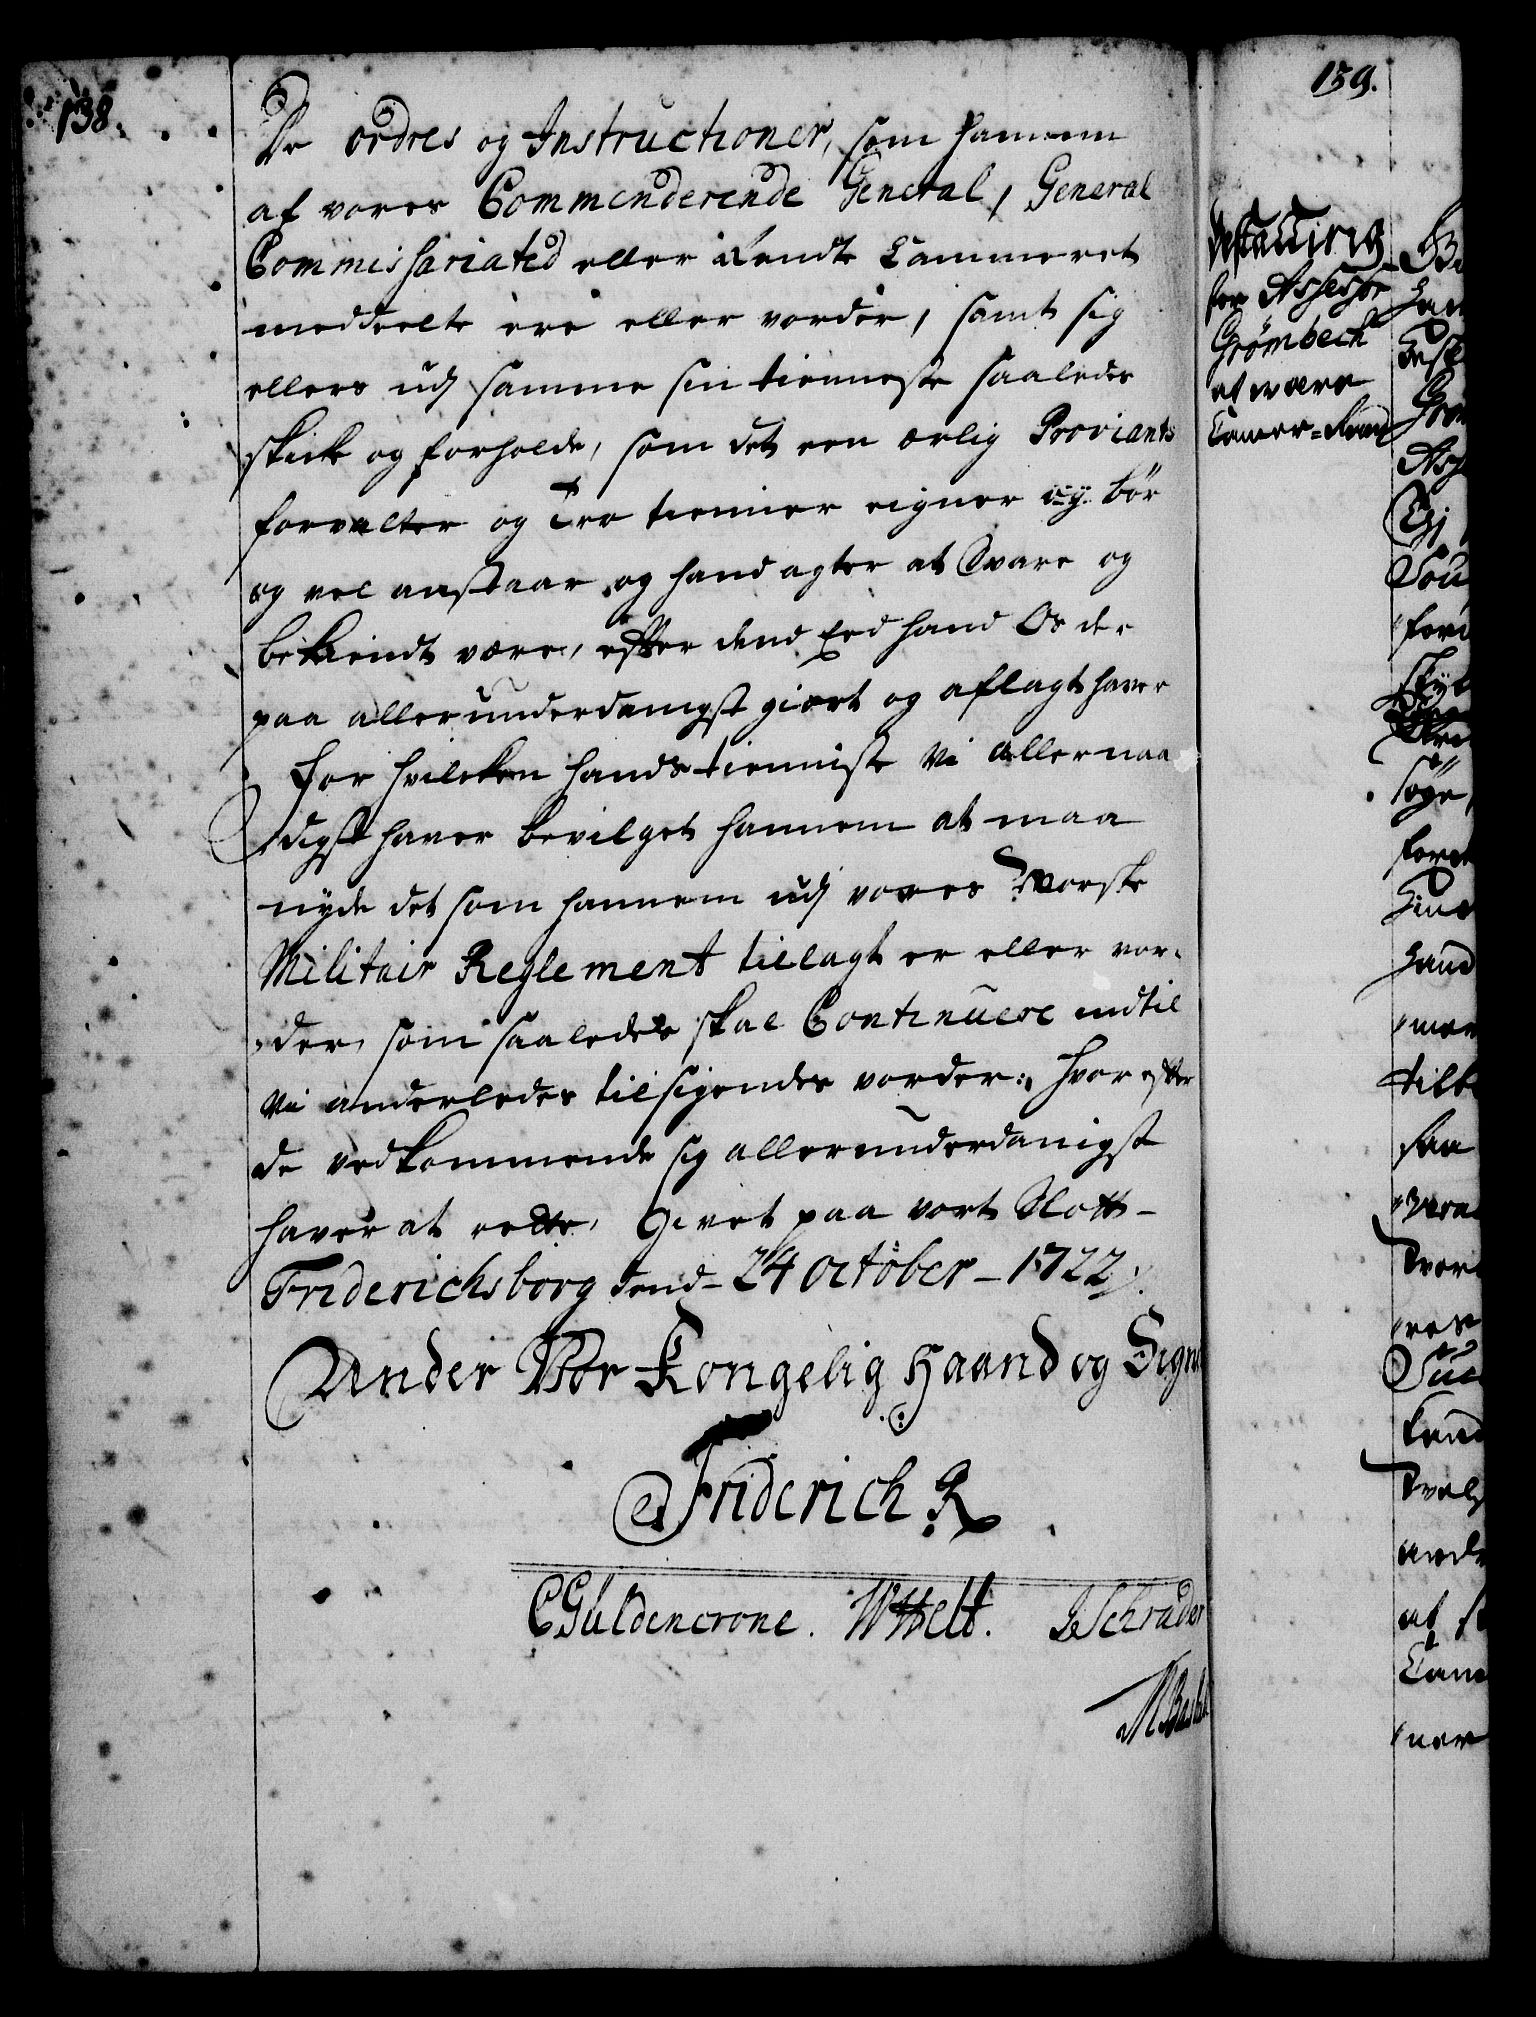 138.
De ordres og Instructioner, som hannem
af vores Commenderende General, General
Commissariated eller Rendte Cammeret
meddeelte ere eller vorder, samt sig
ellers udj samme sin tienneste saaledes
skicke og forholde, som det een ærlig Proviants
forvalter og Troe tienner eigner og bør
og vel anstaar, og hand agter at svare og
bekiendt være, efter dend Eed hand Os der
paa allerunderdanigst giort og aflagt haver
For hvilcken hands tienniste Vi allernaa
digst haver bevilget hannem at maa
nyde det som hannem udj vores Norske
Militair Reglement tillagt er eller vor-
der, som saaledes skal Continuere indtil
Vi anderledes tilsigendes vorder; hvorefter
de vedkommende sig allerunderdanigst
haver at rette, Givet paa vort Slott-
Friderichsborg dend- 24 october - 1722.
Under Vor Kongelig Haand og Signe
Friderich R
CGüldencrone. Wwelt. Schrader
139.
Bestalling
for Assessor
Grömbech
at være
Cammer-Raad